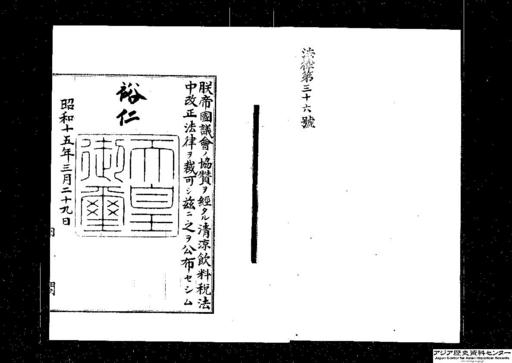 法律第三十六號
朕帝國議會ノ協贊ヲ經タル清涼飲料税法
中改正法律ヲ裁可シ茲ニ之ヲ公布セシム
裕仁
天皇御璽
昭和十五年三月二十九日
内閣
アジア歴史資料センター
Japan Center for Asian Historical Records